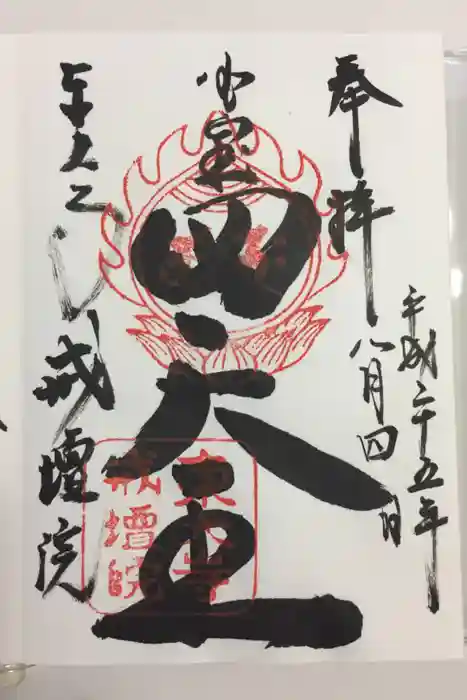 奉拝
平成二十五年
八月四日
国宝
四天王
東大寺戒壇院
東大寺
戒壇院